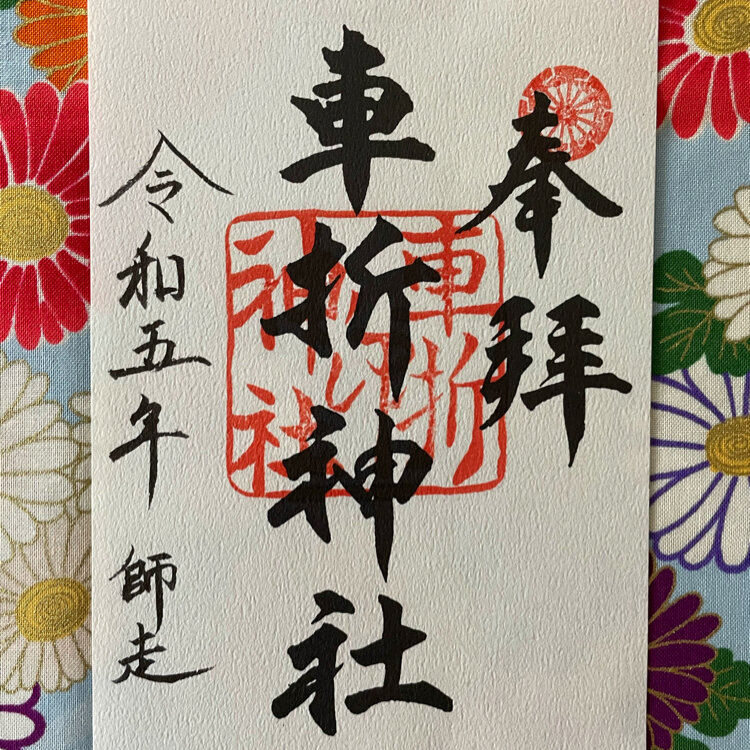 奉拝
車折神社
車折
神社
令和五年 師走